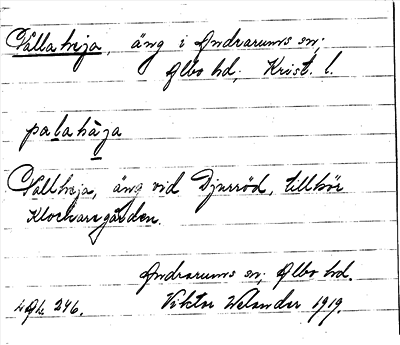 Pallaheja, äng i Andrarums sn;
Albo hd; Krist. l.
palahäja
Pallheja, äng vid Djurröd, tillhör
Klockaregården.
Andrarums sn; Albo hd.
Viktor Welander 1919.
246.